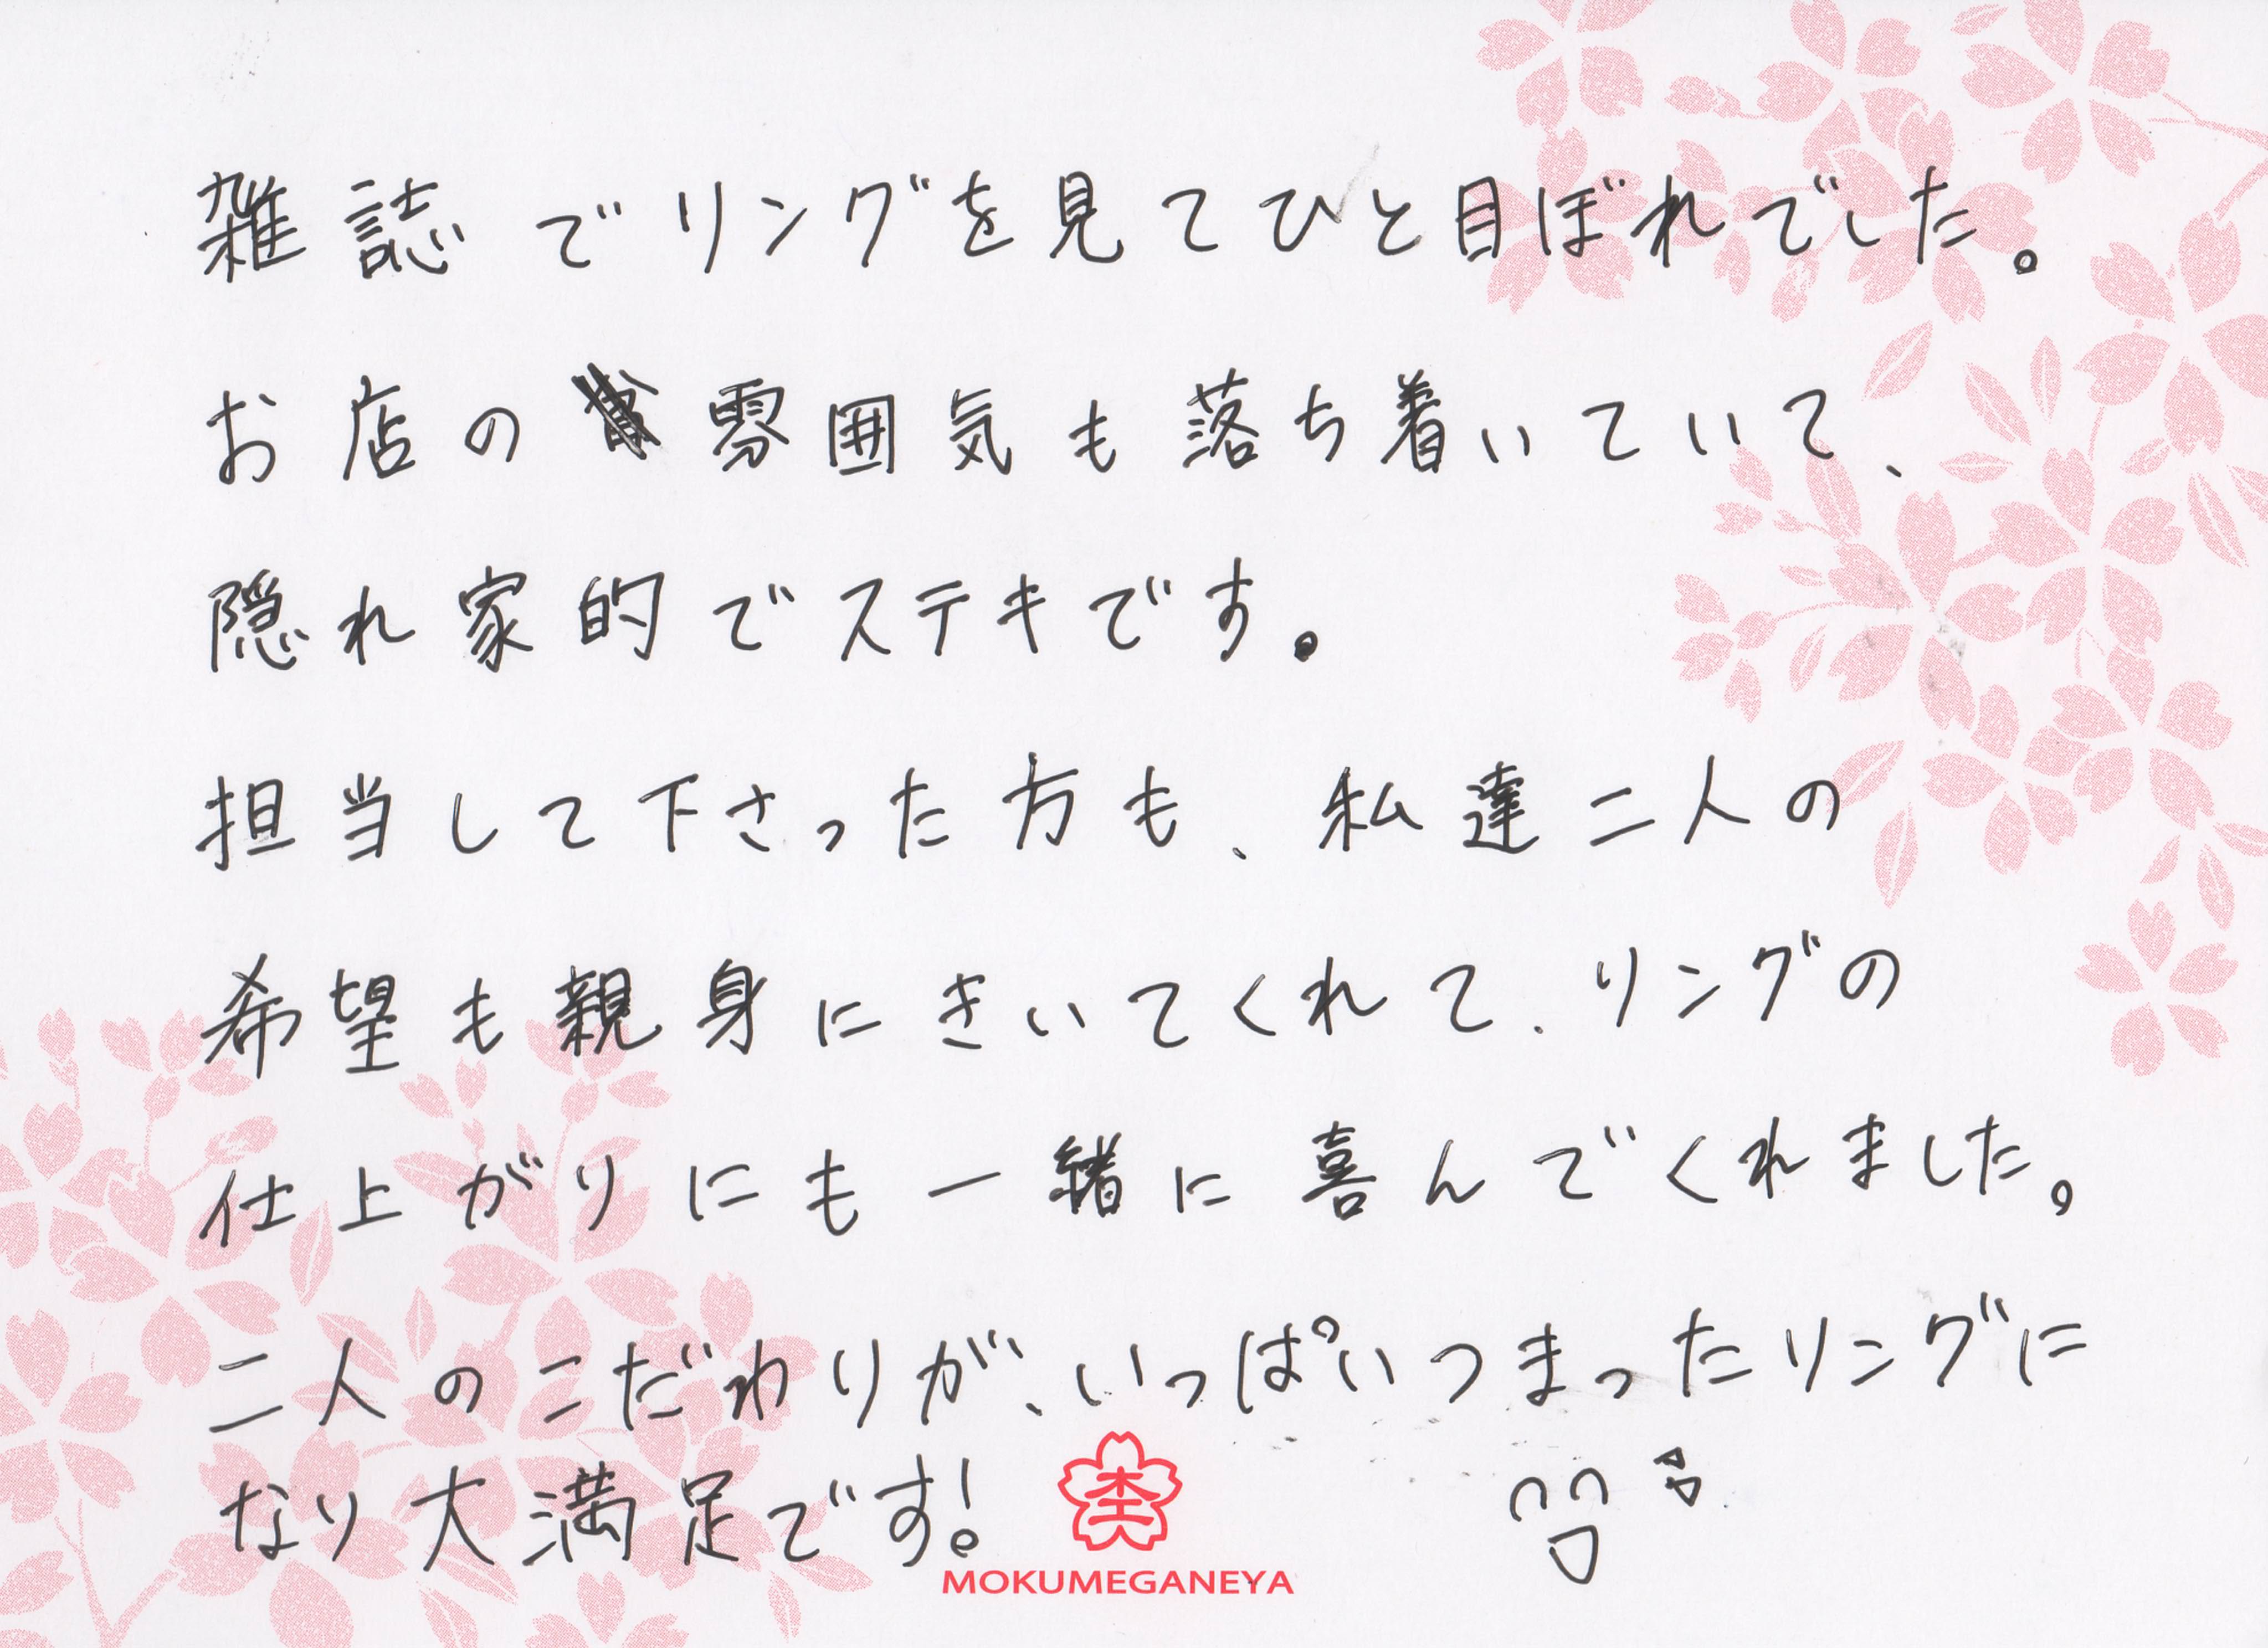 雑誌でリングを見てひと目ぼれでした。
お店の雰囲気も落ち着いていて、
隠れ家的でステキです。
担当して下さった方も、私達二人の
希望も親身にきいてくれて、リングの
仕上がりにも一緒に喜んでくれました。
二人のこだわりが、いっぱいつまったリングに
なり大満足です!
MOKUMEGANEYA